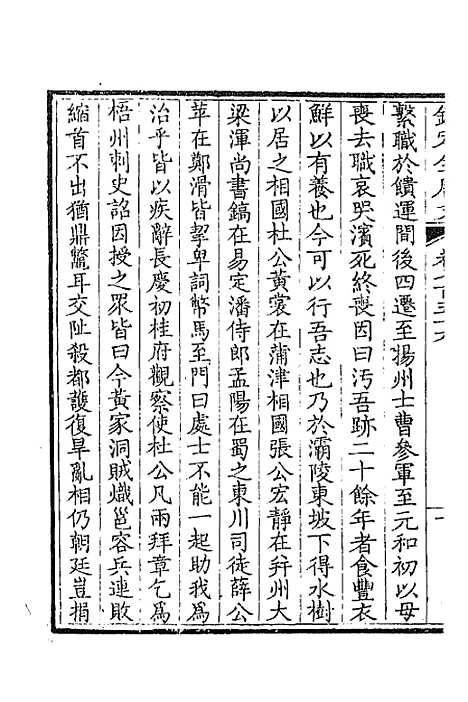 繫職於饋運間後四遷至揚州士曹參軍至元和初以母
喪去職哀哭濱死終喪因曰汚吾跡二十餘年者食豐衣
鮮以有養也今可以行吾志也乃於灞陵東坡下得水樹
以居之相國杜公黃裳在蒲津相國張公宏靜在幷州大
梁渾尚書鎬在易定潘侍郎孟陽在蜀之東川司徒薛公
苹在鄭滑皆挈卑詞幣馬至門曰處士不能一起助我爲
治乎皆以疾辭長慶初桂府觀察使杜公凡兩拜章乞爲
梧州刺史詔因授之眾皆曰今黃家洞賊熾邕容兵連敗
縮首不出猶鼎鼈耳交阯殺都護復旱亂相仍朝廷豈捐